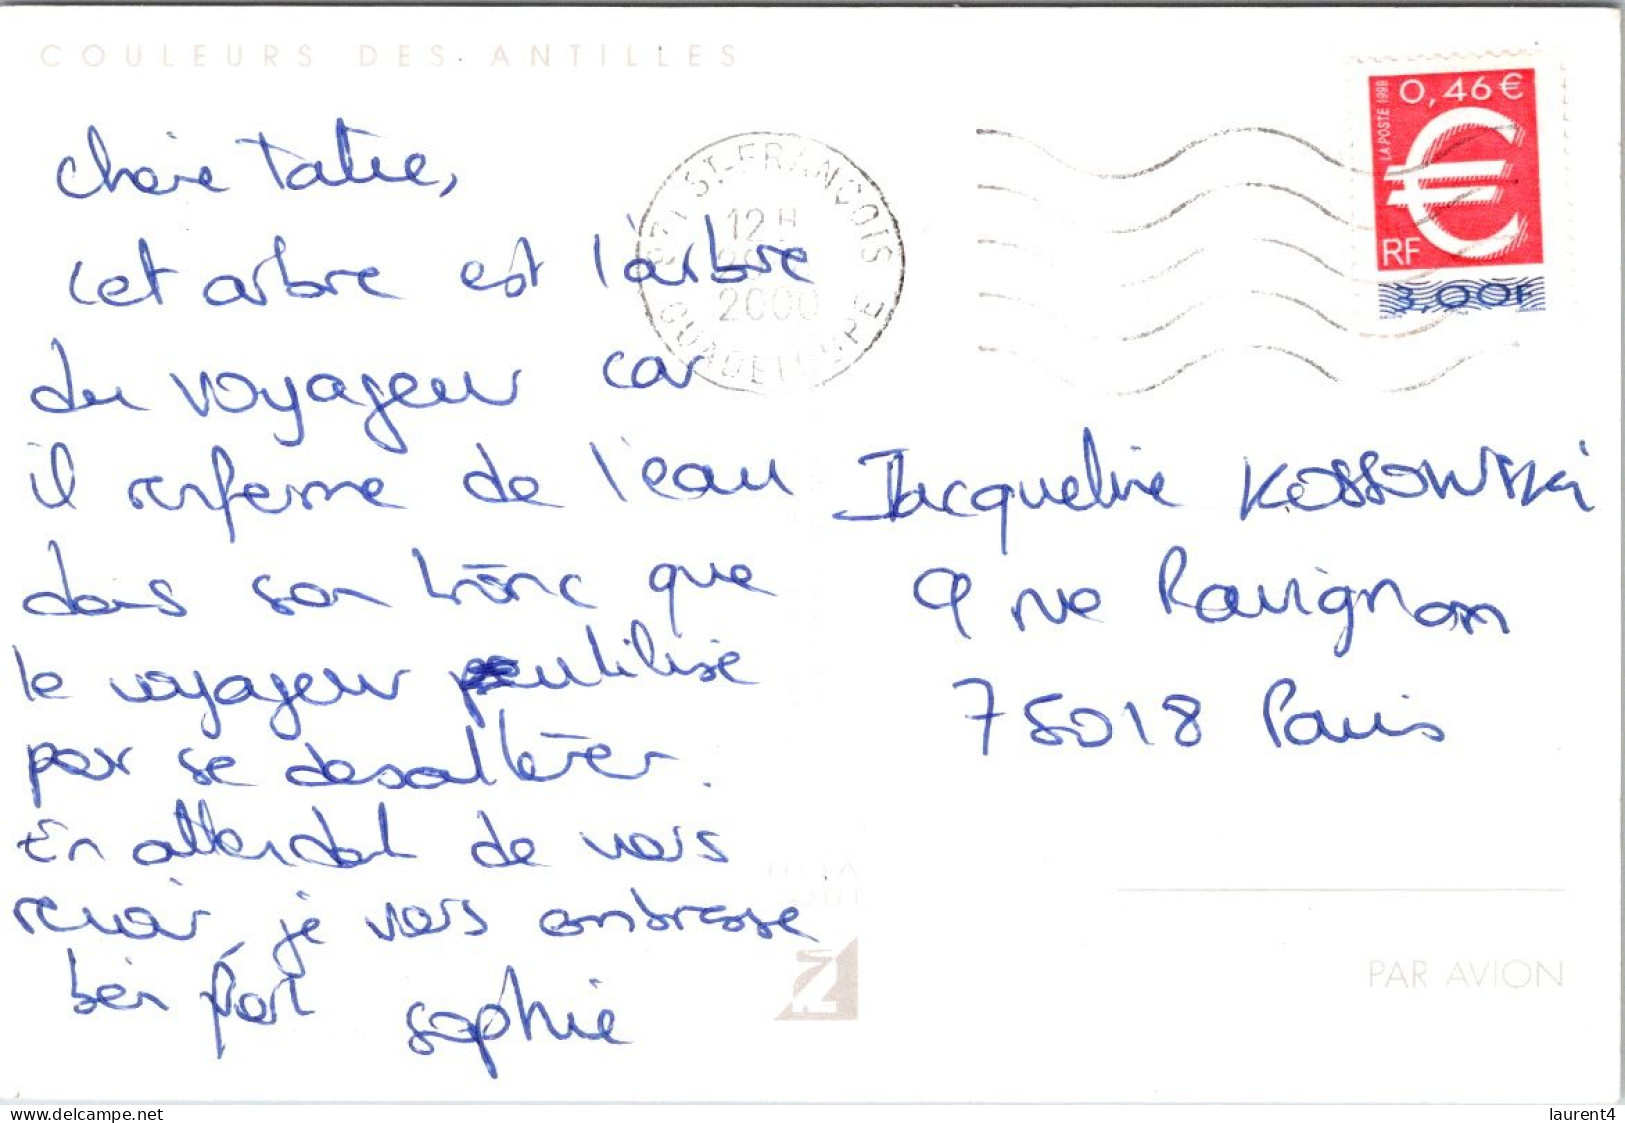 COULEURS DES ANTILLES
0,46 €
LA POSTE 1999
RF
3,00F
971 ST-FRANÇOIS
12 H
2000
GUADELOUPE
Chère Tatie,
cet arbre est l'arbre
du voyageur car
il renferme de l'eau
dans son trônc que
le voyageur utilise
par se desaltérer.
En attendant de vous
revoir, je vous embrasse
bien fort
Sophie
Jacqueline KOSSOWSKI
9 rue Ravignan
75018 Paris
PAR AVION
laurent4
www.delcampe.net